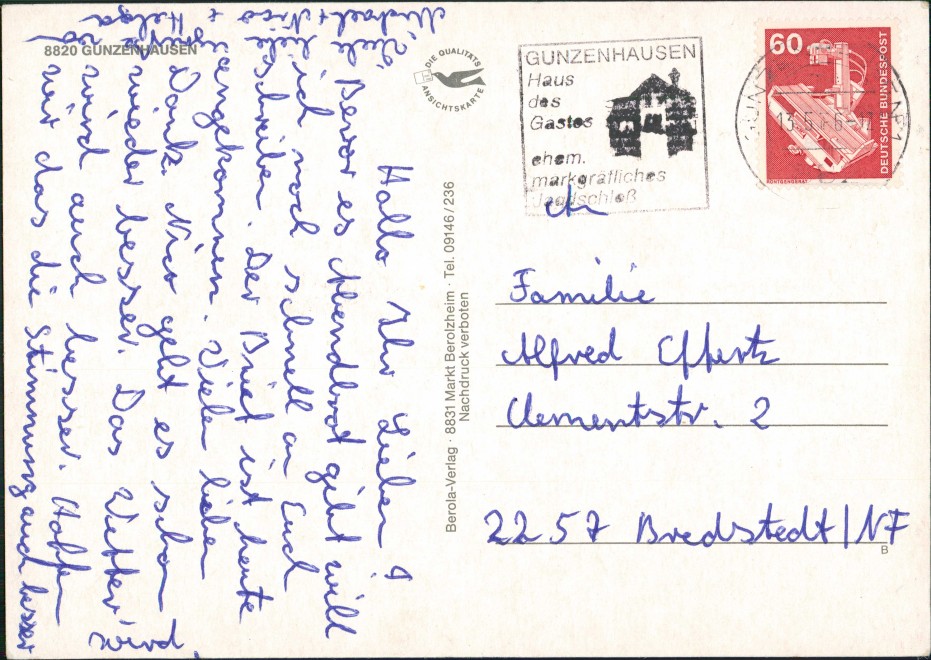 8820 GUNZENHAUSEN
DIE QUALITÄTS
ANSICHTSKARTE
Hallo Ihr Lieben!
Bevor es Abendbrot gibt will
ich noch schnell an Euch
schreiben. Der Brief ist heute
angekommen. Vielen lieben
Dank. Nico geht es schon
wieder besser. Das Wetter wird
wird auch besser. Hoffen
wir das die Stimmung auch besser
wird.
Viele liebe
Michael + Nico +
Helga
Berola-Verlag · 8831 Markt Berolzheim · Tel. 09146/236
Nachdruck verboten
GUNZENHAUSEN
Haus
des
Gastes
ehem.
markgräfliches
Jagdschloß
60
DEUTSCHE BUNDESPOST
RÖNTGENGERÄT
An
Familie
Alfred Effertz
Clementstr. 2
2257 Bredstedt/NF
B